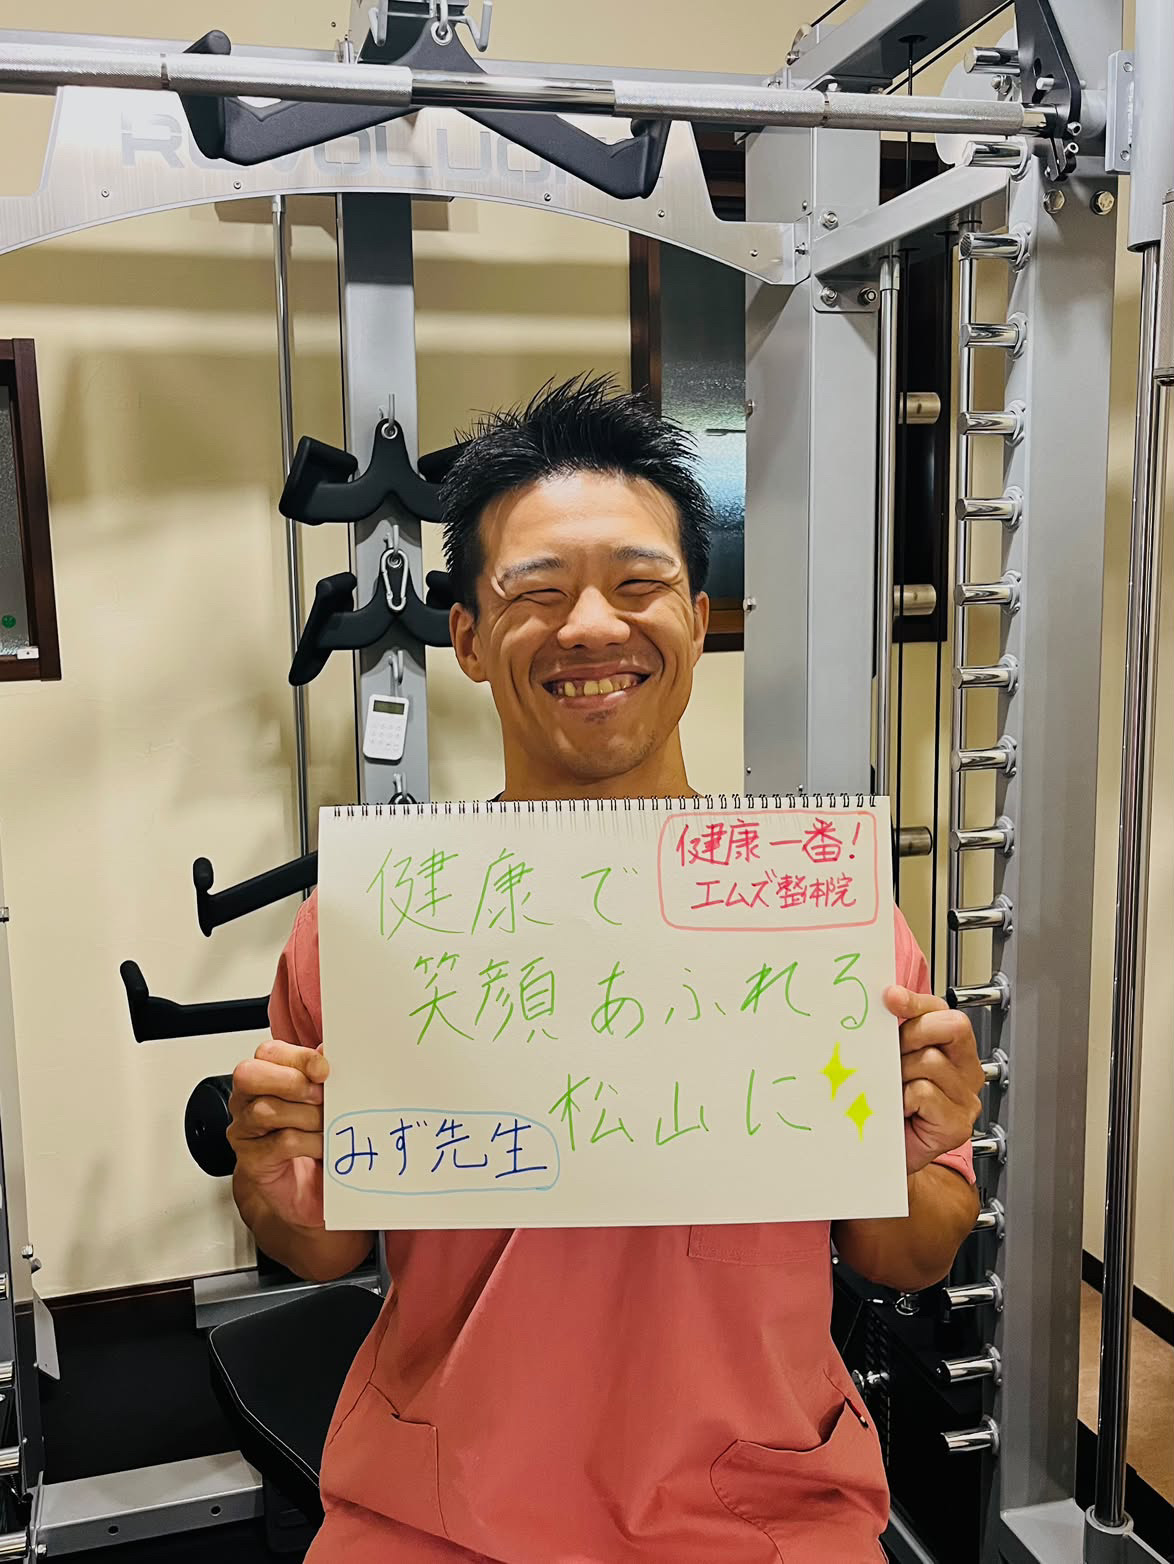 健康一番!
エムズ整体院
健康で
笑顔あふれる
松山に
みず先生